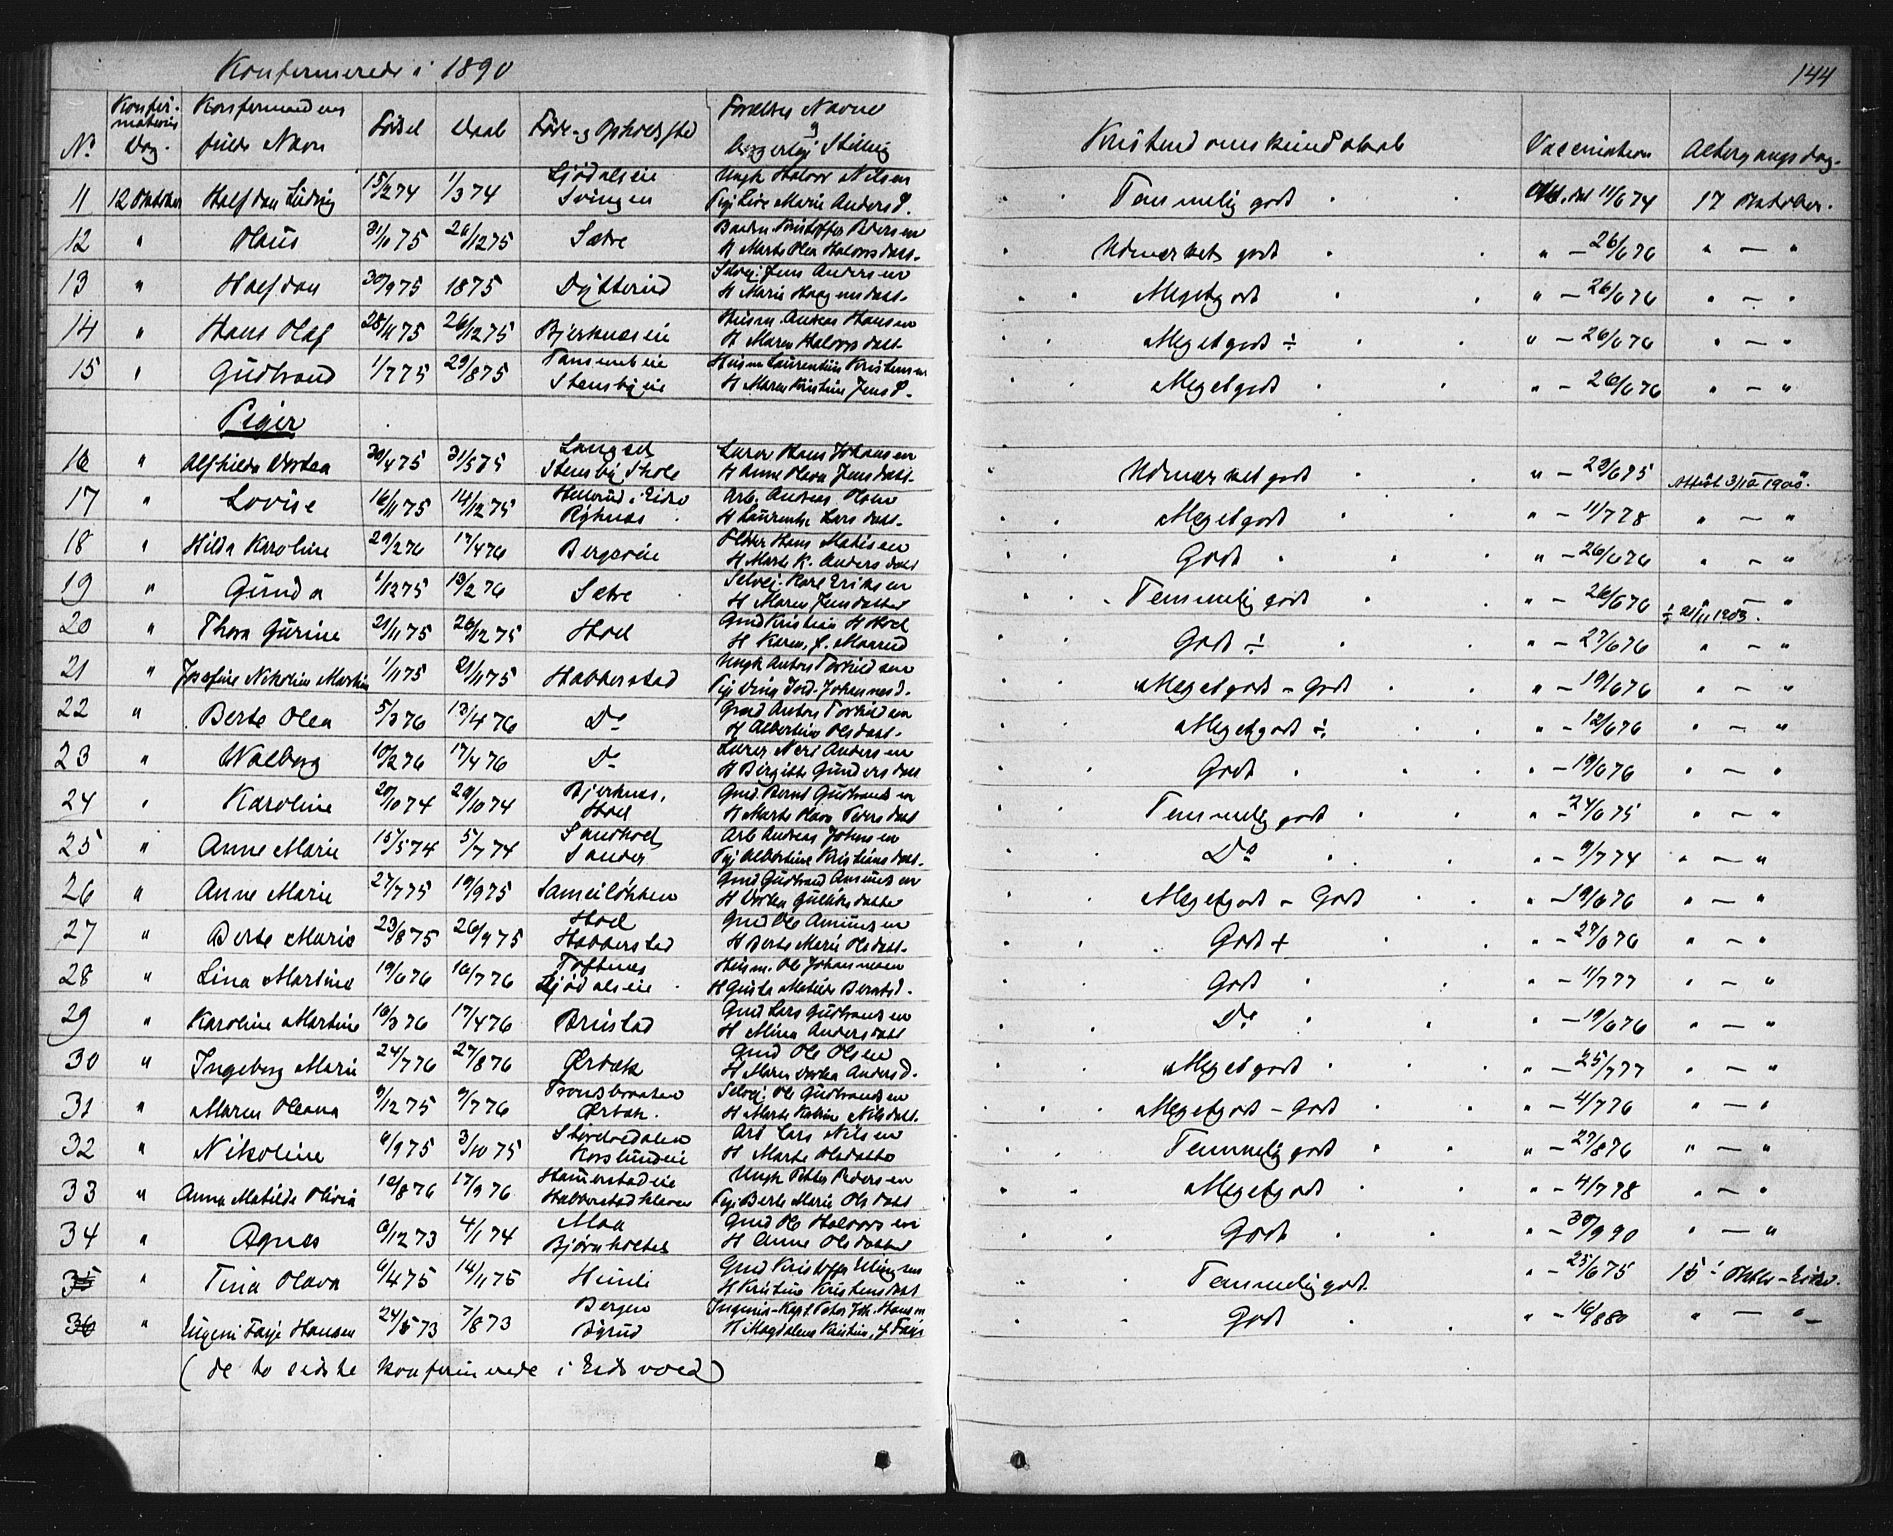 Konfirmerede i 1890
144
No. Konfirmations Dag. Konfirmandens fulde Navn Fødsel Daab Føde- og Opholdssted Forældres Navne og borgerlige Stilling Kristendomskundskab Vaccination Altergangsdag.
11 12 Oktober Halfdan Ludvig 15/2 74 1/3 74 Ljødalseie Svingen Ungk Halvor Nilsen Pige Live Marie Anders D. Temmelig godt Att. dat 11/6 74 17 Oktober.
12 " Olaus 31/10 75 26/12 75 Sætre Baarn Kristoffer Pedersen H Marte Olea Halvorsdatt. Udmærket godt " – 26/6 76 " – "
13 " Halfdan 30/9 75 1875 Dytterud Selvej. Jens Andersen H Marie Haagensdatt. Meget godt " – 26/6 76 " – "
14 " Hans Olaf 28/11 75 26/12 75 Bjerknæseie Husm. Andreas Hansen H Maren Halvorsdatt Meget godt ÷ " – 26/6 76 " – "
15 " Gudbrand 1/7 75 29/8 75 Stensbyeie Husm Laurentius Kristensen H Maren Kristine Jens D. Meget godt " – 26/6 76 " – "
Piger
16 " Alfhilde Dortea 30/4 75 31/5 75 Langset Stensby Skole Lærer Hans Johansen H Anne Olava Jensdatt. Udmærket godt " – 29/6 75 Attest 3/10 1900.
17 " Lovise 16/11 75 14/12 75 Hulerud, Eidsv Ryknæs Arb. Andreas Olsen H Laurentse Larsdatt. Meget godt " – 11/7 78 " – "
18 " Hilda Karoline 29/2 76 17/4 76 Bergereie Hans Matisen H Marte K. Andersdatt Godt " – 26/6 76 " – "
19 " Gunda 1/12 75 13/2 76 Sætre Selvej. Kare Eriksen H Maren Jensdatter Temmelig godt " – 26/6 76 " – "
20 " Thora Gurine 21/11 75 26/12 75 Hoel Gmd Kristian H Hoel H Karen, f. Maarud Godt ÷ " – 27/6 76 " – " ÷ 21/11 1903.
21 " Josefine Nikoline Martine 1/11 75 21/11 75 Habberstad Ungk Anton Torkildsen Pige Johannesd. Meget godt – Godt " – 19/6 76 " – "
22 " Berte Olea 5/3 76 13/4 76 Do Gmd Anton Torkildsen H Albertine Olsdatt. Meget godt ÷ " – 12/6 76 " – "
23 " Walborg 10/2 76 17/4 76 Do Lærer Neri Andersen H Birgitte Gundersdatt Godt " – 19/6 76 " – "
24 " Karoline 20/10 74 29/10 74 Bjerknæs, Hoel Gmd. Bernt Gudbrandsen H Marte Olava Pedersdatt Temmelig godt " – 24/6 75 " – "
25 " Anne Marie 15/5 74 5/7 74 Sandhol Sander Arb Andreas Johnsen Pige Albertine Kristiansdatt. Do " – 9/7 74 " – "
26 " Anne Marie 27/7 75 19/9 75 Sameiløkken Gmd Gudbrand Amundsen H Dortea Gulliksdatter Meget godt – Godt " – 19/6 76 " – "
27 " Berte Marie 23/8 75 26/9 75 Hoel Habberstad Gmd Ole Amundsen H Berte Marie Olsdatt. Godt + " – 27/6 76 " – "
28 " Lina Martine 19/6 76 16/7 76 Toftnæs Ljødalseie Husm. Ole Johannesen H Gusta Matilde Berntsd. Godt " – 11/7 77 " – "
29 " Karoline Martine 16/3 76 17/4 76 Brustad Gmd Lars Gudbrandsen H Mina Andersdatt Do " – 19/6 76 " – "
30 " Ingeborg Marie 24/7 76 27/8 76 Ørbæk Gmd Ole Olsen H Maren Dortea Anders D. Meget godt " – 25/7 77 " – "
31 " Maren Oleana 9/12 75 9/7 76 Tronsbraaten Ørbæk. Selvej. Ole Gudbrandsen H Marte Katrine Nilsdatt. Meget godt – Godt " – 4/7 76 " – "
32 " Nikoline 6/9 75 3/10 75 Korslundeie Arb Lars Nilsen H Marte Olsdatter Temmelig godt " – 27/8 76 " – "
33 " Anna Matilde Olivia 12/8 76 17/9 76 Hammerstadeie Habberstadkleven Ungk Petter Pedersen Pige Berte Marie Olsdatt Meget godt " – 4/7 78 " – "
34 " Agnes 6/12 73 4/1 74 Maa Bjørnholtet Gmd Ole Halvorsen H Anne Olsdatter Godt " – 30/9 90 " – "
35 " Tina Olava 6/4 75 14/11 75 Hunli Gmd Kristoffer Ellingsen H Kristine Kristensdatt Temmelig godt " – 25/6 75 15' Oktbr – Eidsv.
36 " Eugeni Faye Hansen 24/5 73 7/8 73 Bergen Bøirud Ingeniør-Kapt. Peter Joh. Hansen H Magdalena Kristine, f. Faye Godt " – 16/8 80 " – "
(de to sidste konfirmerede i Eidsvold)